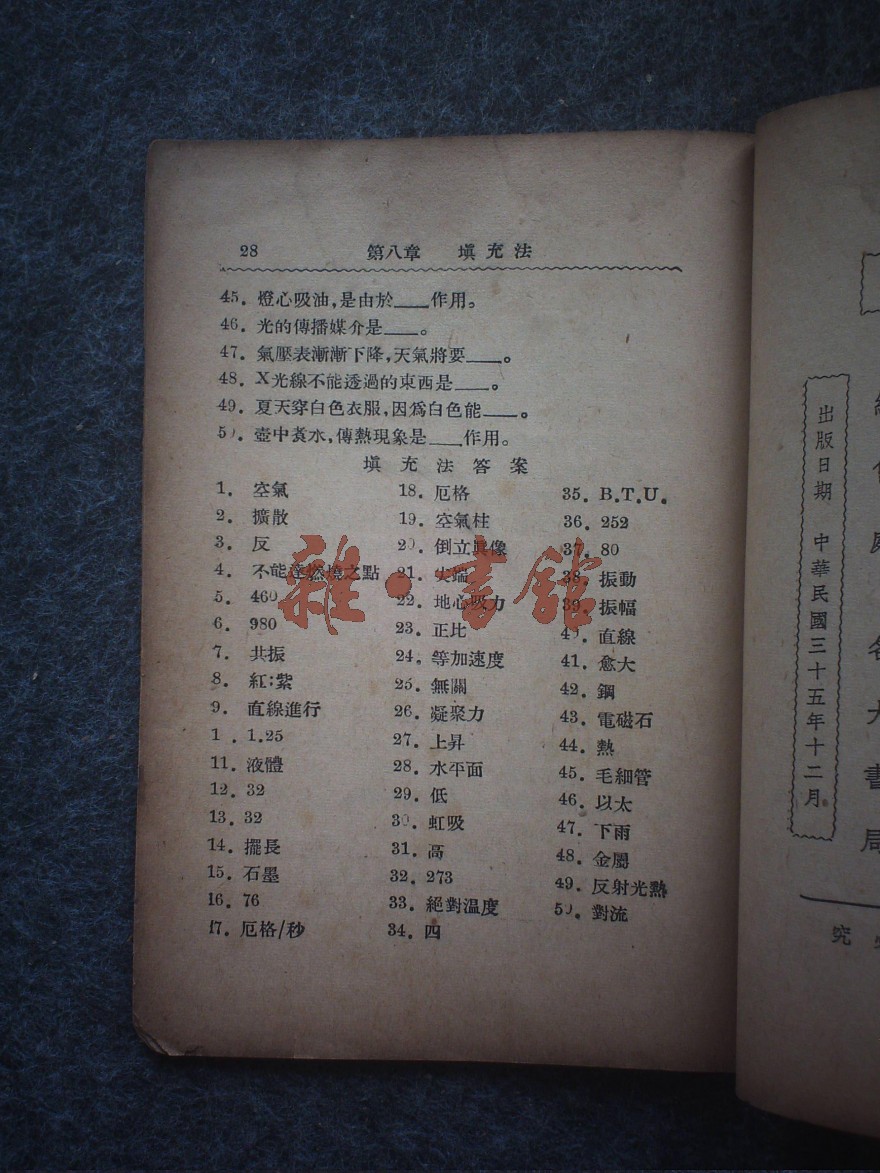 28 第八章 塡充法
45. 燈心吸油,是由於____作用。
46. 光的傳播媒介是____。
47. 氣壓表漸漸下降,天氣將要____。
48. X光線不能透過的東西是____。
49. 夏天穿白色衣服,因爲白色能____。
50. 壺中煑水,傳熱現象是____作用。
塡充法答案
1. 空氣
2. 擴散
3. 反
4. 不能達燃燒之點
5. 460
6. 980
7. 共振
8. 紅;紫
9. 直線進行
1 . 1.25
11. 液體
12. 32
13. 32
14. 擺長
15. 石墨
16. 76
17. 厄格/秒
18. 厄格
19. 空氣柱
20. 倒立眞像
21. 尖端
22. 地心吸力
23. 正比
24. 等加速度
25. 無關
26. 凝聚力
27. 上昇
28. 水平面
29. 低
30. 虹吸
31. 高
32. 273
33. 絕對温度
34. 四
35. B.T.U.
36. 252
37. 80
38. 振動
39. 振幅
40. 直線
41. 愈大
42. 鋼
43. 電磁石
44. 熱
45. 毛細管
46. 以太
47. 下雨
48. 金屬
49. 反射光熱
50. 對流
雜·書館
出版日期 中華民國三十五年十二月
各大書局
究